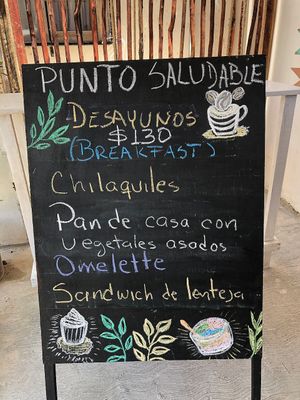 PUNTO SALUDABLE
DESAYUNOS
$130
(BREAKFAST)
Chilaquiles
Pan de casa con
vegetales asados
Omelette
Sandwich de lenteja